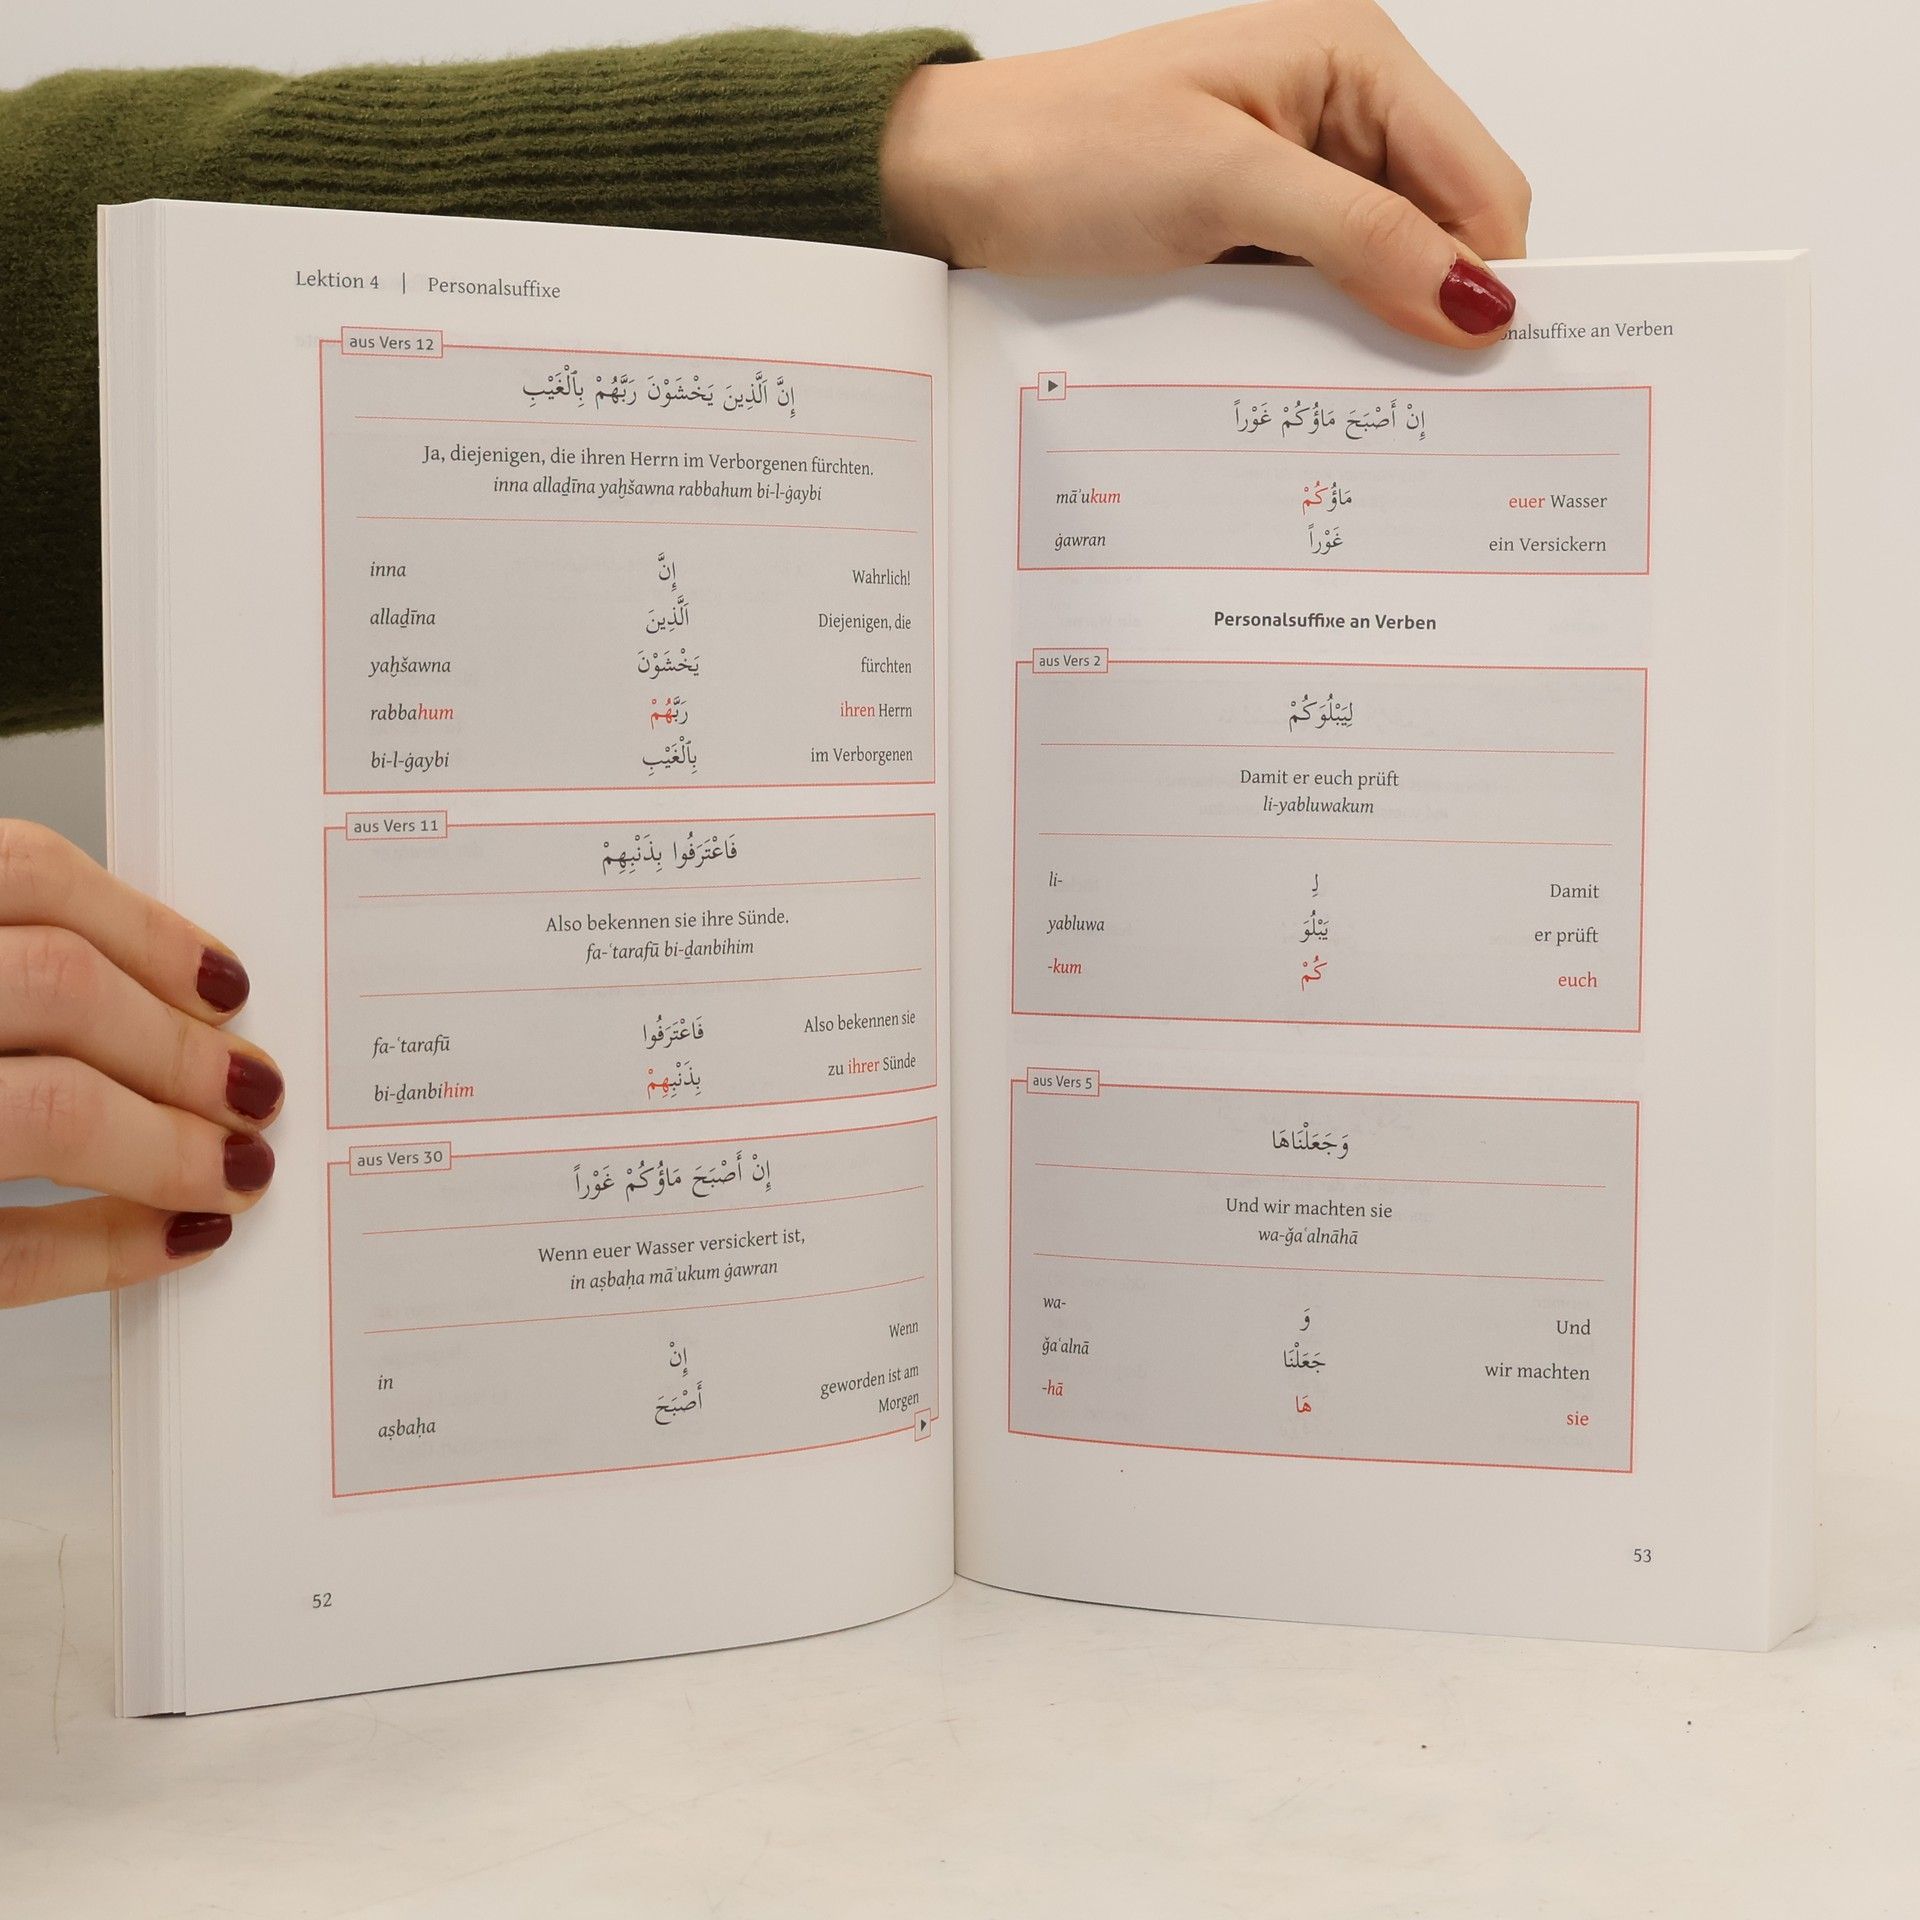 Lektion 4 | Personalsuffixe
aus Vers 12
إِنَّ ٱلَّذِينَ يَخْشَوْنَ رَبَّهُمْ بِٱلْغَيْبِ
Ja, diejenigen, die ihren Herrn im Verborgenen fürchten.
inna allaḏīna yaḫšawna rabbahum bi-l-ġaybi
inna إِنَّ Wahrlich!
allaḏīna ٱلَّذِينَ Diejenigen, die
yaḫšawna يَخْشَوْنَ fürchten
rabbahum رَبَّهُمْ ihren Herrn
bi-l-ġaybi بِٱلْغَيْبِ im Verborgenen
aus Vers 11
فَاعْتَرَفُوا بِذَنْبِهِمْ
Also bekennen sie ihre Sünde.
fa-ʿtarafū bi-ḏanbihim
fa-ʿtarafū فَاعْتَرَفُوا Also bekennen sie
bi-ḏanbihim بِذَنْبِهِمْ zu ihrer Sünde
aus Vers 30
إِنْ أَصْبَحَ مَاؤُكُمْ غَوْراً
Wenn euer Wasser versickert ist,
in aṣbaḥa māʾukum ġawran
in إِنْ Wenn
aṣbaḥa أَصْبَحَ geworden ist am
Morgen
52
nalsuffixe an Verben
إِنْ أَصْبَحَ مَاؤُكُمْ غَوْراً
māʾukum مَاؤُكُمْ euer Wasser
ġawran غَوْراً ein Versickern
Personalsuffixe an Verben
aus Vers 2
لِيَبْلُوَكُمْ
Damit er euch prüft
li-yabluwakum
li- لِ Damit
yabluwa يَبْلُوَ er prüft
-kum كُمْ euch
aus Vers 5
وَجَعَلْنَاهَا
Und wir machten sie
wa-ǧaʿalnāhā
wa- وَ Und
ǧaʿalnā جَعَلْنَا wir machten
-hā هَا sie
53